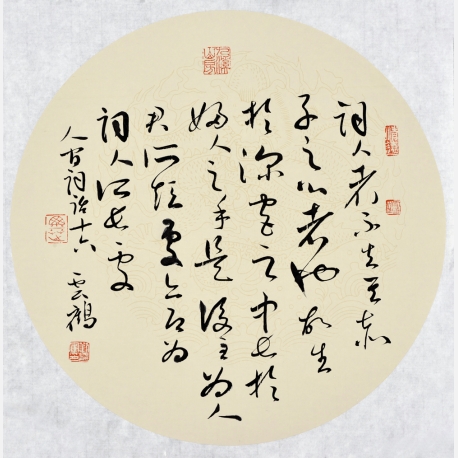 詞人者不失其赤
子之心者也故生
於深宮之中長於
婦人之手是後主為人
君所短處亦即為
詞人所長處
人間詞話十六 雲鶴